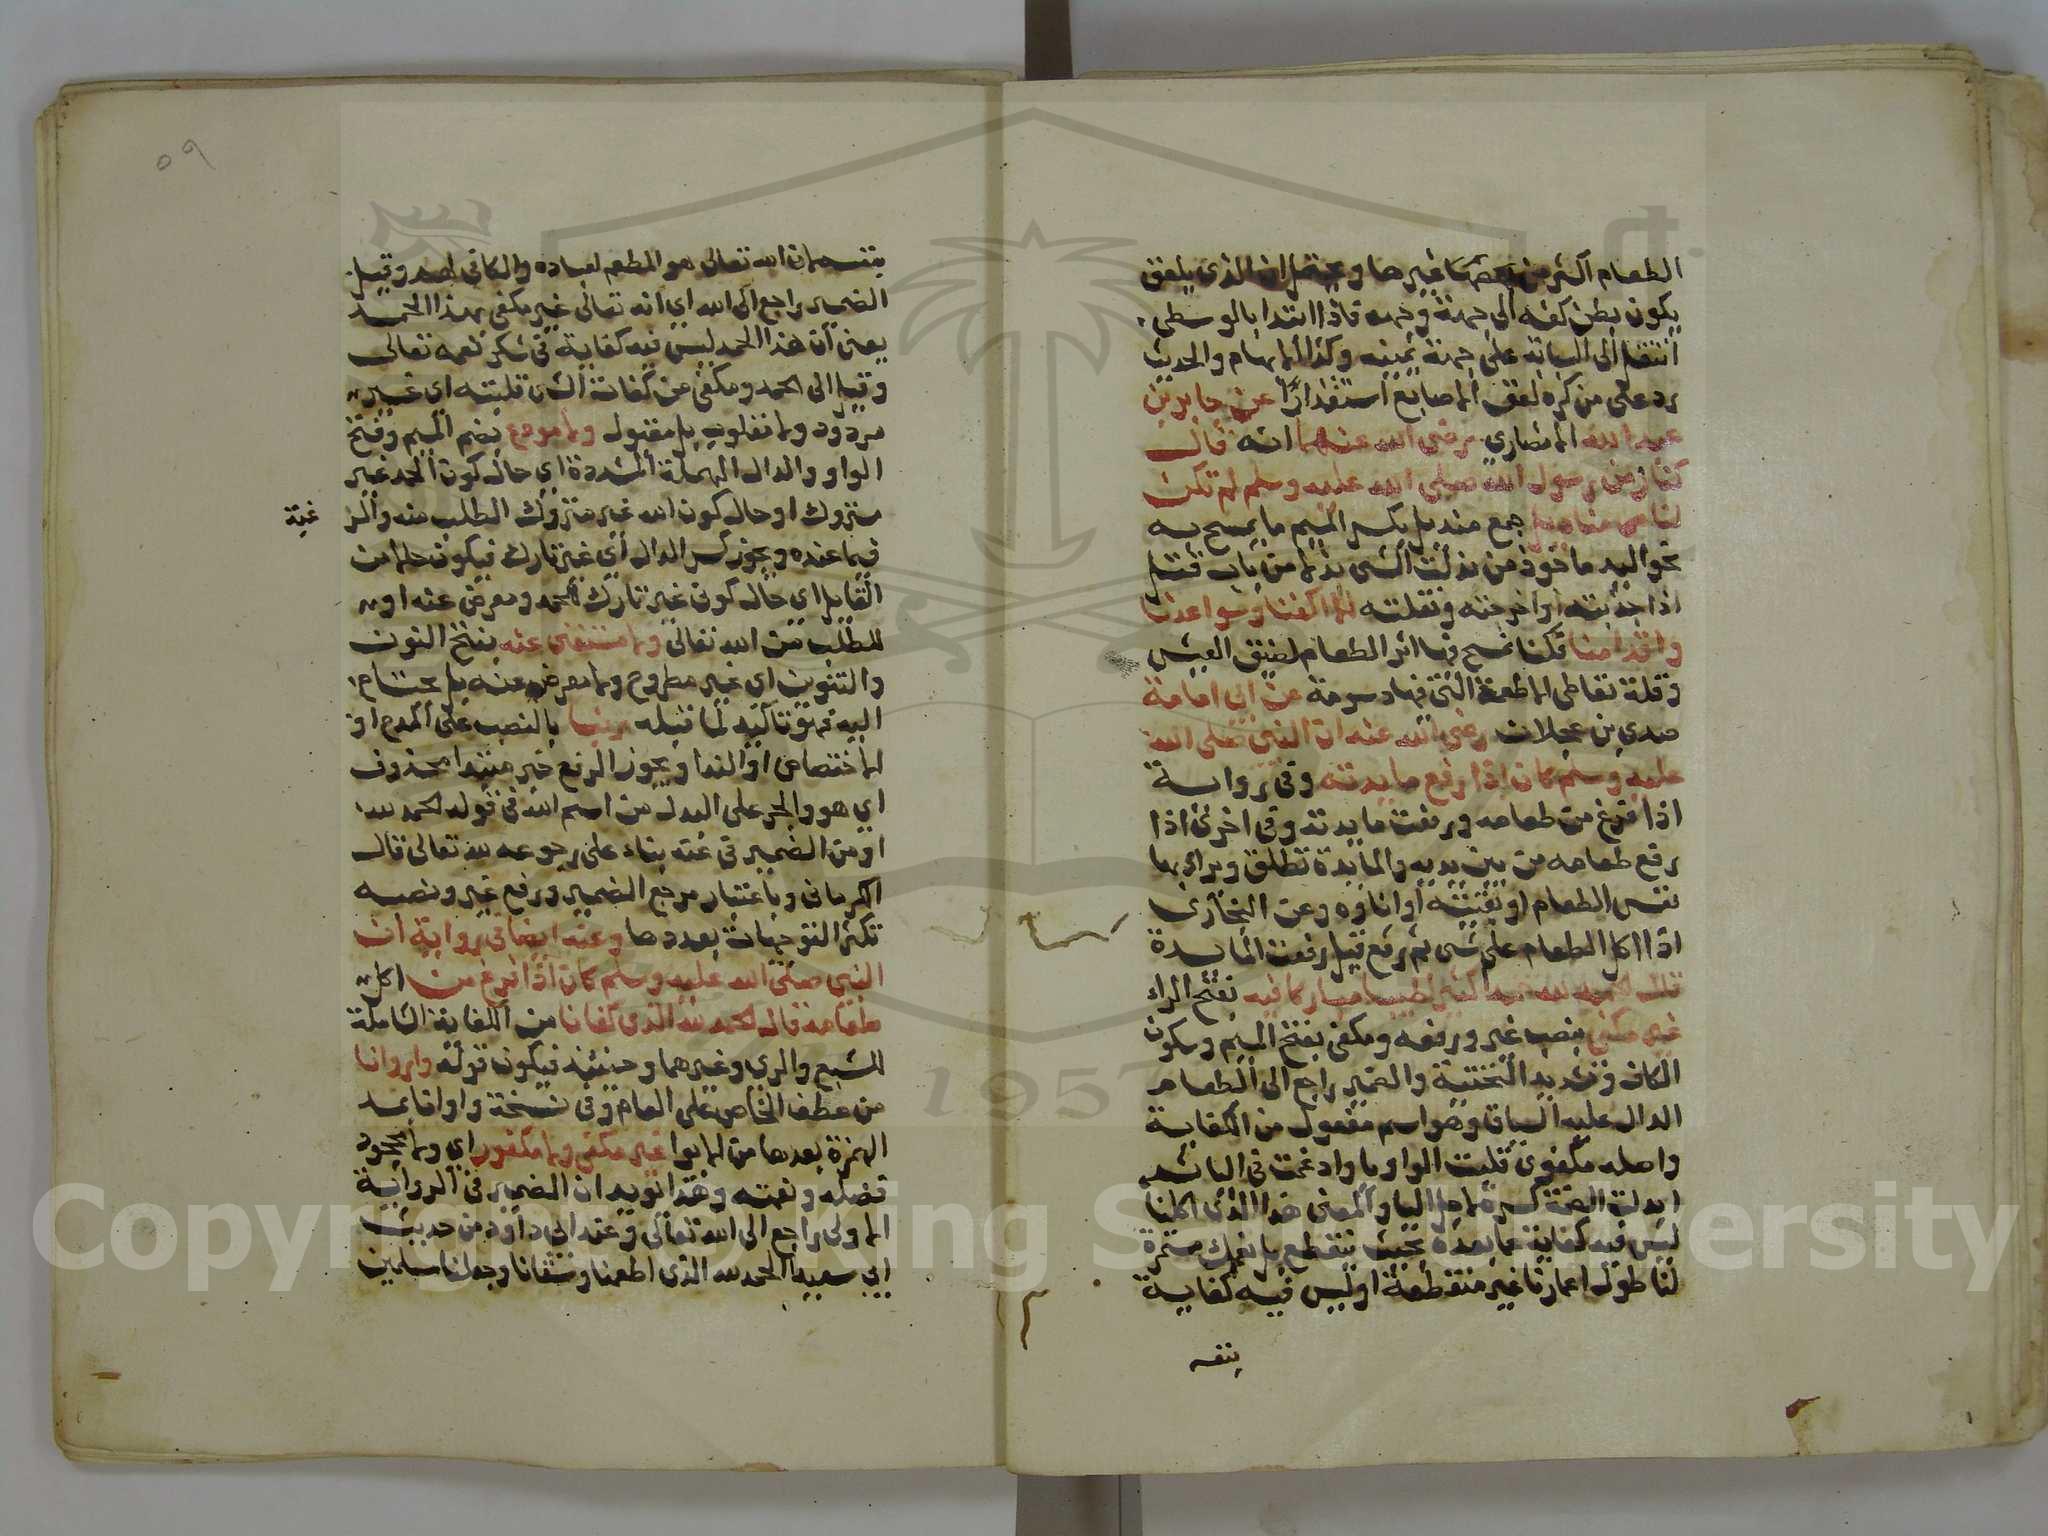 الطعام اكثر من بعضها غيرها ويحتمل ان الذي يلعق
يكون بطن كفه الى جهة وجهه فاذا ابتدا بالوسطى
انتقل الى السبابة على جهة يمينه وكذا الابهام والحديث
رد على من كره لعق الاصابع استقذارا عن جابر بن
عبد الله الانصاري رضى الله عنهما انه قال
كنا زمن رسول الله صلى الله عليه وسلم لم تكن
لنا مناديل جمع منديل بكسر الميم ما يمسح به
نحو اليد ماخوذ من ندلت الشى ندلا من باب قتل
اذا جذبته او اخرجته ونقلته الا اكفنا وسواعدنا
واقدامنا فكنا نمسح بها اثر الطعام لضيق العيش
وقلة تعاطى الاطعمة التى فيها دسومة عن ابى امامة
صدي بن عجلان رضى الله عنه ان النبى صلى الله
عليه وسلم كان اذا رفع مايدته وفى رواية
اذا فرغ من طعامه ورفعت مايدته وفى اخرى اذا
رفع طعامه من بين يديه والمايدة تطلق ويراد بها
نفس الطعام او بقيته او اناوه وعن البخارى
اذا اكل الطعام على شى ثم رفع قيل رفعت المايدة
قال الحمد لله حمدا كثيرا طيبا مباركا فيه بفتح الراء
غير مكفى بنصب غير ورفعه ومكفى بفتح الميم وسكون
الكاف وتشديد التحتية والضمير راجع الى الطعام
الدال عليه السياق وهو اسم مفعول من الكفاية
واصله مكفوى قلبت الواو يا وادغمت فى اليا ثم
ابدلت الضمة كسرة لاجل اليا والمعنى هذا الذى اكلنا
ليس فيه كفاية لما بعده بحيث ينقطع بل نعمك مستمرة
لنا طول اعمارنا غير منقطعة او ليس فيه كفاية
بنفسه
٥٩
بنفسه لان الله تعالى هو المطعم لعباده والكافى لهم وقيل
الضمير راجع الى الله اي انه تعالى غير مكفى بهذا الحمد
يعنى ان هذا الحمد ليس فيه كفاية فى شكر نعمه تعالى
وقيل الى الحمد ومكفى من كفات الشى قلبته اى غير
مردود ولا مقلوب بل مقبول ولا مودع بضم الميم وفتح
الواو والدال المهملة المشددة اى حال كون الحمد غير
متروك او حال كون الله غير متروك الطلب منه والر
غبة
فيما عنده ويجوز كسر الدال أي غير تارك فيكون حالا من
القايل اى حال كونى غير تارك الحمد ومعرض عنه او
للطلب من الله تعالى ولا مستغنى عنه بفتح النون
والتنوين اى غير مطروح ولا معرض عنه بل محتاج
اليه فهو تاكيد لما قبله ربنا بالنصب على المدح او
الاختصاص او الندا ويجوز الرفع خبر مبتدا محذوف
اي هو والجر على البدل من اسم الله فى قوله الحمد لله
او من الضمير فى عنه بناء على رجوعه لله تعالى قال
الكرمانى وباعتبار مرجع الضمير ورفع غير ونصبه
تكثر التوجيهات بعددها وعنه ايضا فى رواية ان
النبى صلى الله عليه وسلم كان اذا فرغ من اكل
طعامه قال الحمد لله الذى كفانا من الكفاية الشاملة
للشبع والرى وغيرهما وحينئذ فيكون قوله واروانا
من عطف الخاص على العام وفى نسخة واوانا بمد
الهمزة بعدها من الايوا غير مكفى ولا مكفور اي ولا مجحود
فضله ونعمته وهذا يويد ان الضمير فى الرواية
الاولى راجع الى الله تعالى وعند ابى داود من حديث
ابي سعيد الحمد لله الذى اطعمنا وسقانا وجعلنا مسلمين
1957
Copyright © King Saud University